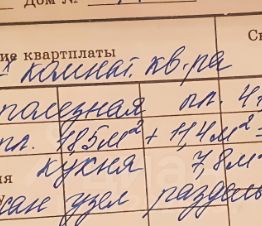 Дом №
ие квартплаты Ск
комнат. кв-ра
полезная пл. 4
пл. 18,5 м² + 11,4 м² =
кухня 7,8 м²
сан узел раздель